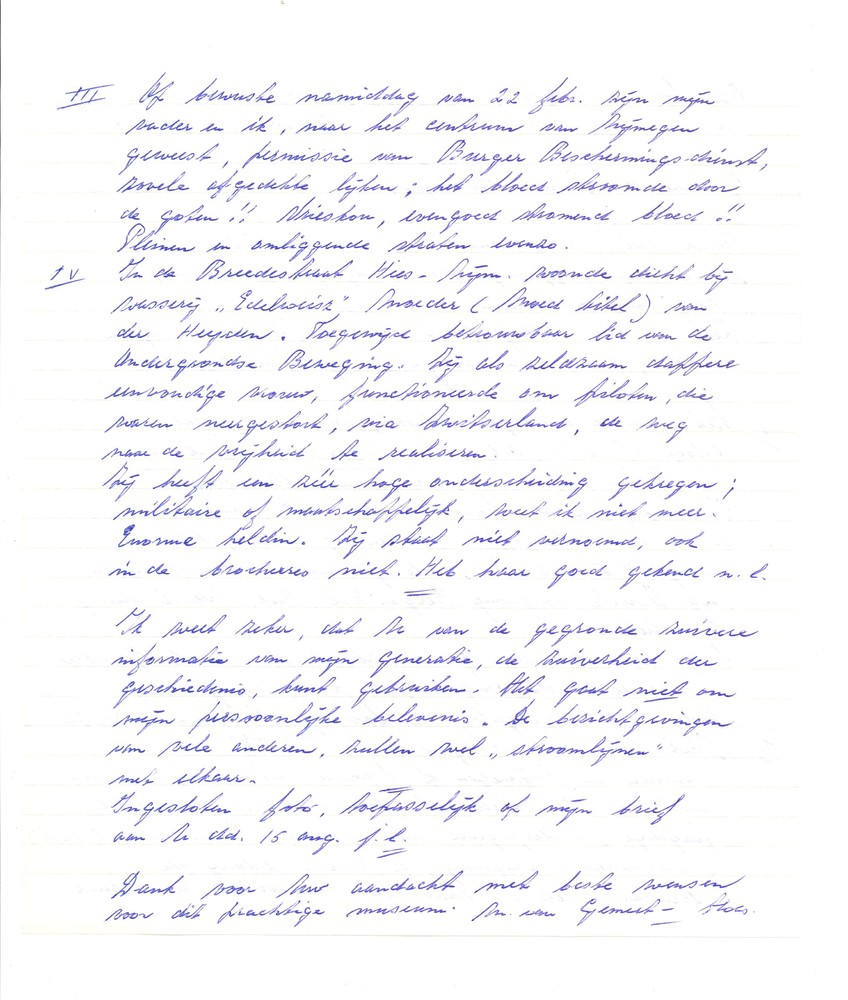 III Op bewuste namiddag van 22 febr. zijn mijn
vader en ik, naar het centrum van Nijmegen
geweest, permissie van Burger Beschermings-dienst,
zovele afgedekte lijken; het bloed stroomde door
de goten!! Vrieskou, evengoed stromend bloed!!
Pleinen en omliggende straten evenzo.
IV In de Breedestraat Hees-Nijm. woonde dicht bij
wasserij „Edelweisz" Moeder (Moed ) van
der Heyden. Toegewijd betrouwbaar lid van de
Ondergrondse Beweging. Zij als zeldzaam dappere
eenvoudige vrouw, functioneerde om piloten, die
waren neergestort, via Zwitserland, de weg
naar de vrijheid te realiseren.
Zij heeft een zéér hoge onderscheiding gekregen;
militaire of maatschappelijk, weet ik niet meer.
Enorme heldin. Zij staat niet vernoemd, ook
in de brochures niet. Heb haar goed gekend n.l.
Ik weet zeker, dat U van de gegronde zuivere
informatie van mijn generatie, de zuiverheid der
geschiedenis, kunt gebruiken. Het gaat niet om
mijn persoonlijke belevenis. De berichtgevingen
van vele anderen, zullen wel „stroomlijnen"
met elkaar.
Ingesloten foto, toepasselijk op mijn brief
aan U dd. 15 aug. j.l.
Dank voor Uw aandacht met beste wensen
voor dit prachtige museum. M. van Gemert-